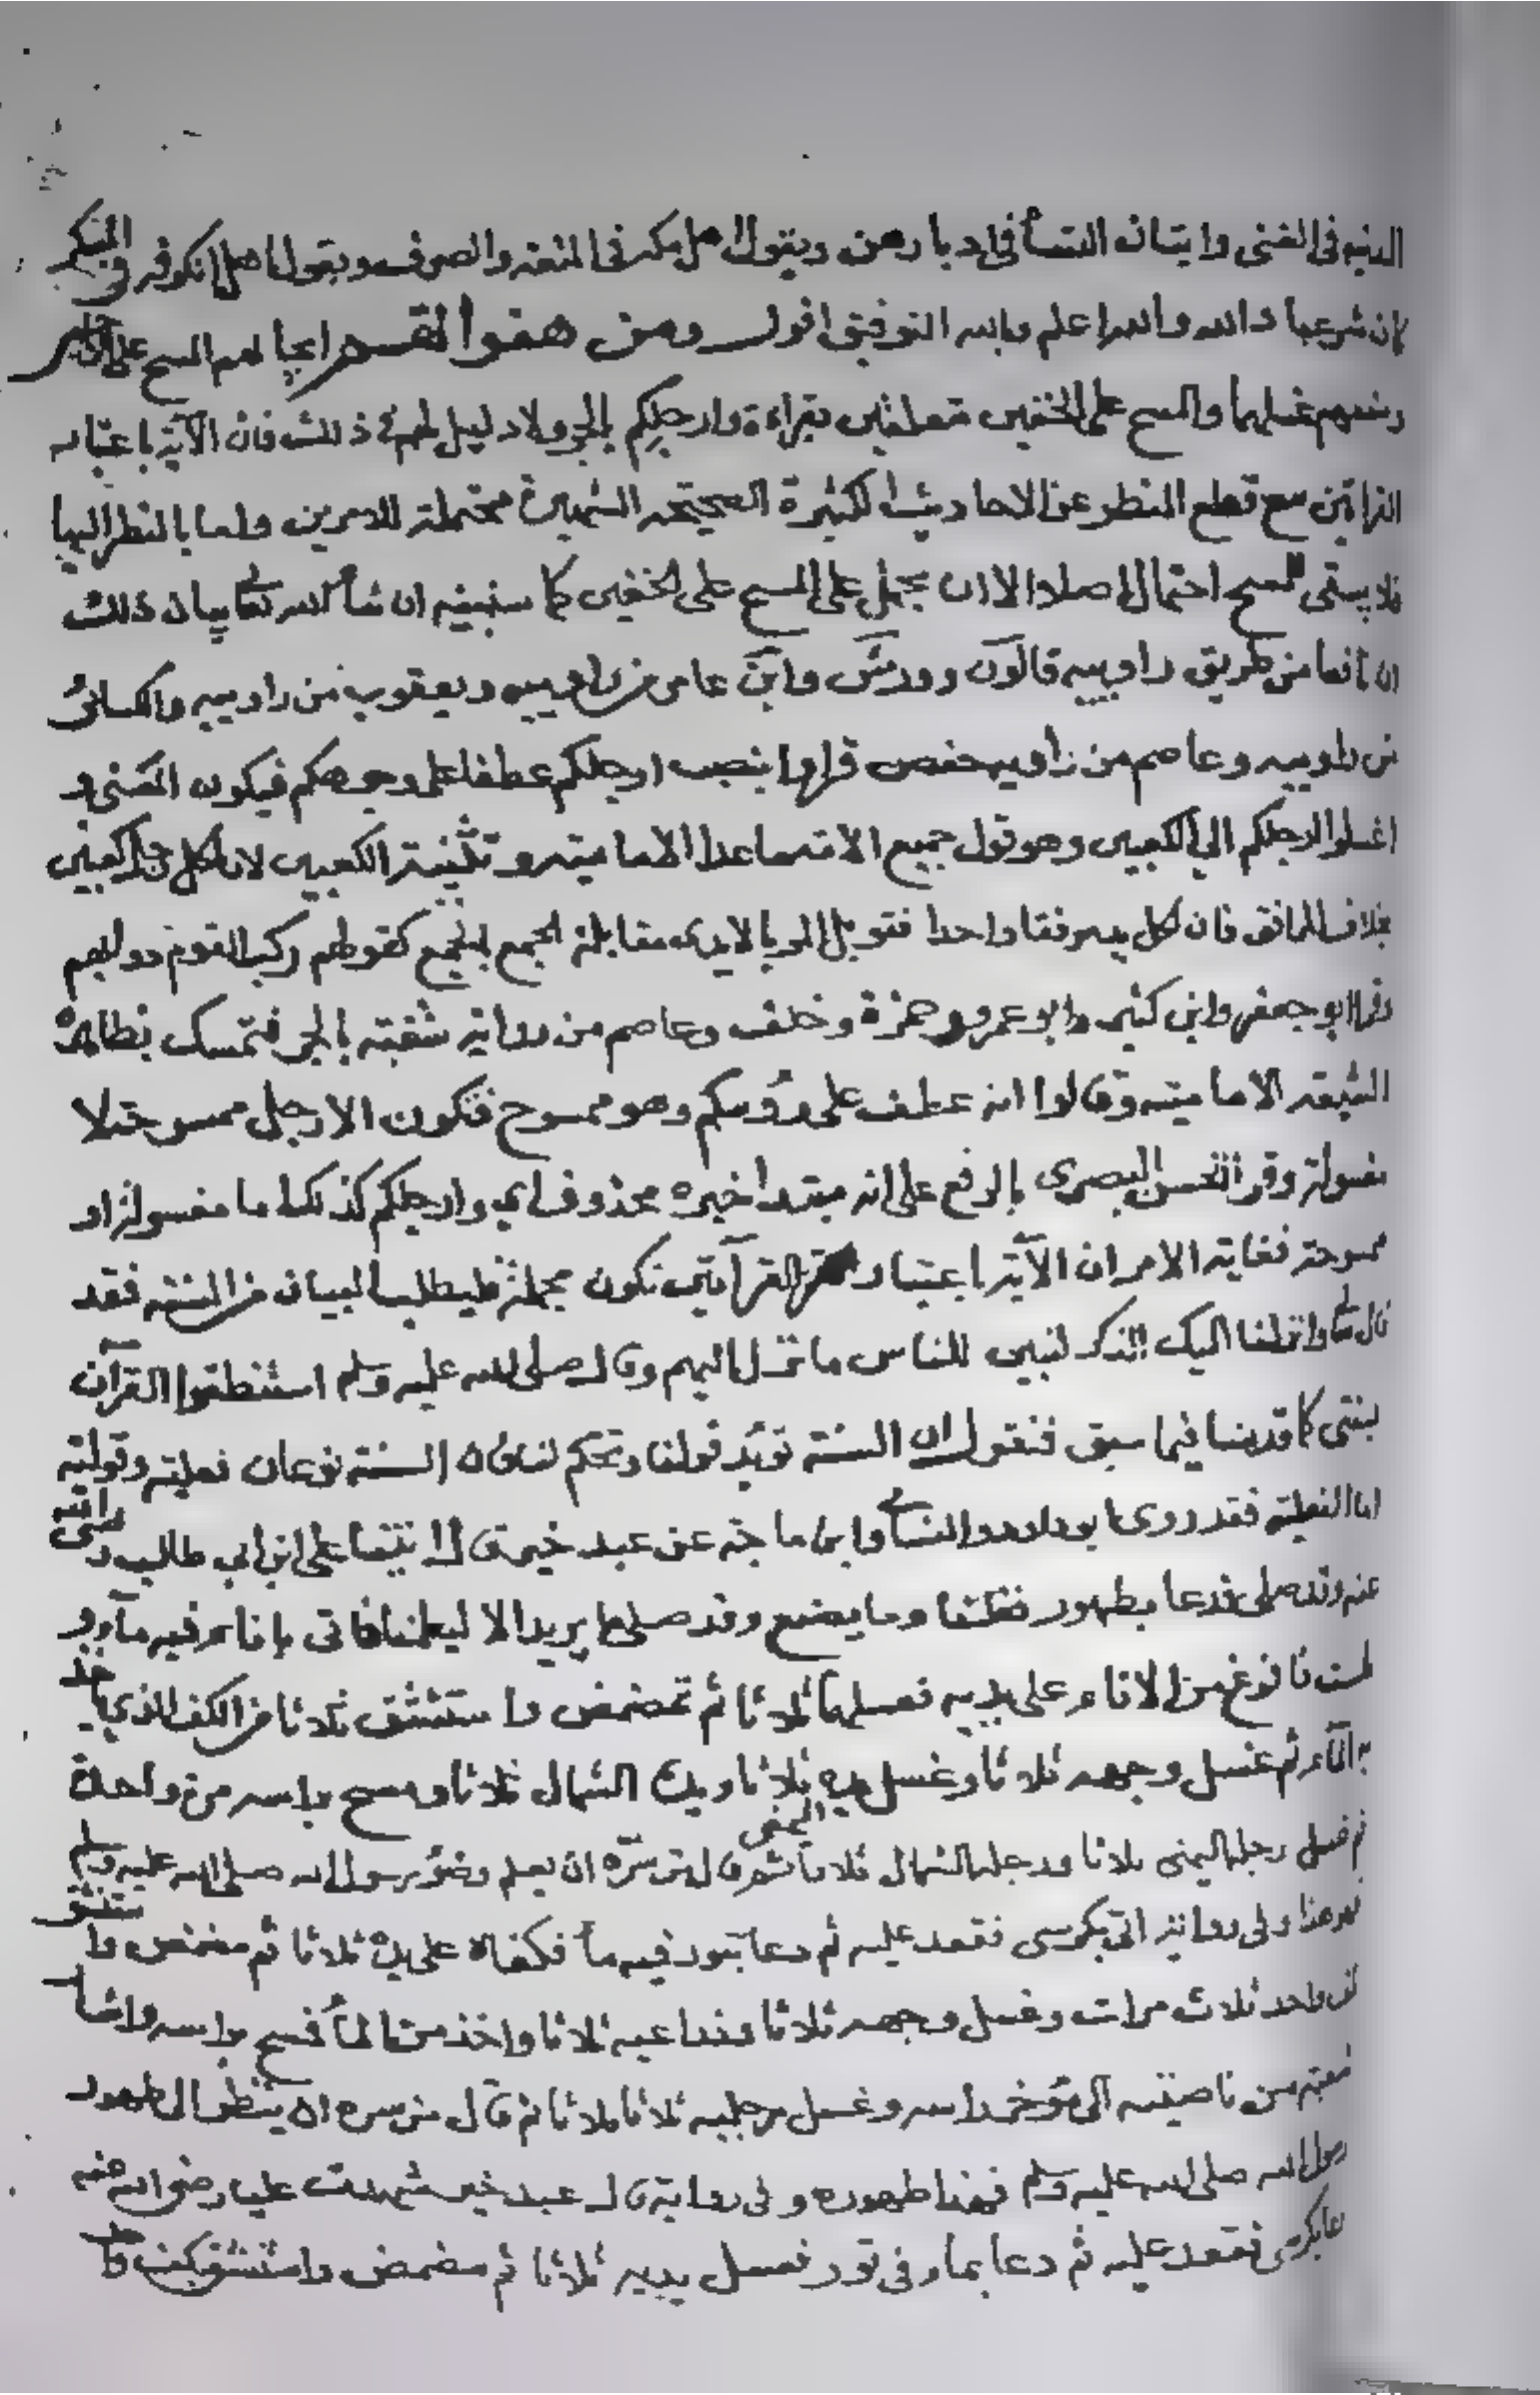 المدينة في الغنى وإيتان النسأ في ادبارهن ويقول اهل مكة في المتعة والصرف ويقول اهل الكوفة في المسكر
كان شر عباد الله والله اعلم وبالله التوفيق اقول ومن هفواتهم ايجابهم المسح على
ومنعهم غسلهما والمسح على الخفين متعلقين بقراءة وارجلكم بالجر ولا دليل لهم في ذلك فان الآية باعتبار
القراتين مع قطع النظر عن الاحاديث الكثيرة الصحيحة الشهيرة محتملة للامرين واما بالنظر اليها
فلا يبقى للمسح احتمال اصلا الا ان يحمل على المسح على الخفين كما سنبينه ان شأ الله تعالى بيان ذلك
ان نافعا من طريق راوييه قالون وورش وابن عامر من راوييه ويعقوب من راوييه والكسائي
من راوييه وعاصم من راويه حفص قراوا بنصب ارجلكم عطفا على وجوهكم فيكون المعنى و
اغسلوا ارجلكم الى الكعبين وهو قول جميع الامة ما عدا الامامية وتثنية الكعبين لان لكل رجل كعبين
بخلاف المرافق فان لكل يد مرفقا واحدا فقوبل المرافق بالايدى مقابلة الجمع بالجمع كقولهم ركب القوم دوابهم
وقرا ابو جعفر وابن كثير وابو عمرو وحمزة وخلف وعاصم من رواية شعبة بالجر فتمسك بظاهره
الشيعة الامامية وقالوا انه عطف على رؤسكم وهو ممسوح فتكون الارجل ممسوحة لا
مغسولة وقرا الحسن البصرى بالرفع على انه مبتدا خبره محذوف اي وارجلكم كذلك اما مغسولة او
ممسوحة فغاية الامر ان الآية باعتبار القرآتين تكون مجملة فليطلب البيان من السنة فقد
قال تعالى وانزلنا اليك الذكر لتبين للناس ما نزل اليهم وقال صلى الله عليه وسلم استنطقوا القرآن
بسنتي كما قدمنا فيما سبق فنقول ان السنة تؤيد قولنا وتحكم لنا فان السنة نوعان فعلية وقولية
اما الفعلية فقد روى ابو داود والنسأي وابن ماجة عن عبد خير قال اتينا على ابن ابي طالب رضي الله
عنه وقد صلى فدعا بطهور فقلنا وما يصنع وقد صلى ما يريد الا ليعلمنا فاتى باناء فيه مآء و
طست فافرغ من الاناء على يديه فغسلهما ثلاثا ثم تمضمض واستنشق ثلاثا من الكف الذي ياخذ
به المآء ثم غسل وجهه ثلاثا وغسل يده اليمنى ثلاثا ويده الشمال ثلاثا ومسح براسه مرة واحدة
ثم غسل رجله اليمنى ثلاثا ورجله الشمال ثلاثا ثم قال من سره ان يعلم وضوء رسول الله صلى الله عليه وسلم
فهو هذا وفي رواية اتى بكرسى فقعد عليه ثم دعا بتور فيه مآ فكفاه على يده ثلاثا ثم مضمض واستنشق
بكف واحد ثلاث مرات وغسل وجهه ثلاثا وذراعيه ثلاثا واخذ من المآ فمسح براسه واشار
شعبة من ناصيته الى مؤخر رأسه وغسل رجليه ثلاثا ثلاثا ثم قال من سره ان ينظر الى طهور
رسول الله صلى الله عليه وسلم فهذا طهوره وفي رواية قال عبد خير شهدت عليا رضى الله عنه
دعا بكرسى فقعد عليه ثم دعا بماء في تور فغسل يديه ثلاثا ثم مضمض واستنشق بكف واحد